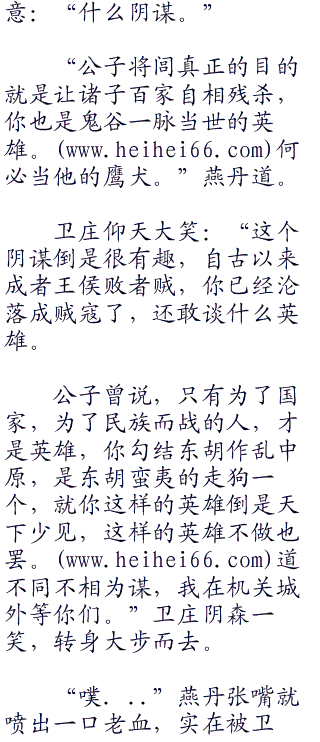 意：“什么阴谋。”
“公子将闾真正的目的
就是让诸子百家自相残杀，
你也是鬼谷一脉当世的英
雄。(www.heihei66.com)何
必当他的鹰犬。”燕丹道。
卫庄仰天大笑：“这个
阴谋倒是很有趣，自古以来
成者王侯败者贼，你已经沦
落成贼寇了，还敢谈什么英
雄。
公子曾说，只有为了国
家，为了民族而战的人，才
是英雄，你勾结东胡作乱中
原，是东胡蛮夷的走狗一
个，就你这样的英雄倒是天
下少见，这样的英雄不做也
罢。(www.heihei66.com)道
不同不相为谋，我在机关城
外等你们。”卫庄阴森一
笑，转身大步而去。
“噗...”燕丹张嘴就
喷出一口老血，实在被卫